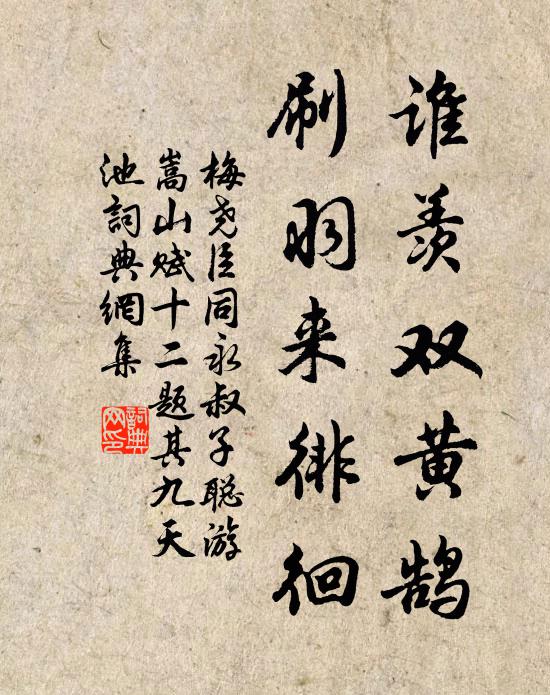 谁羡双黄鹄
刷羽来徘徊
梅尧臣同永叔子聪游
嵩山赋十二题其九天
池词典網集
詞典
网印